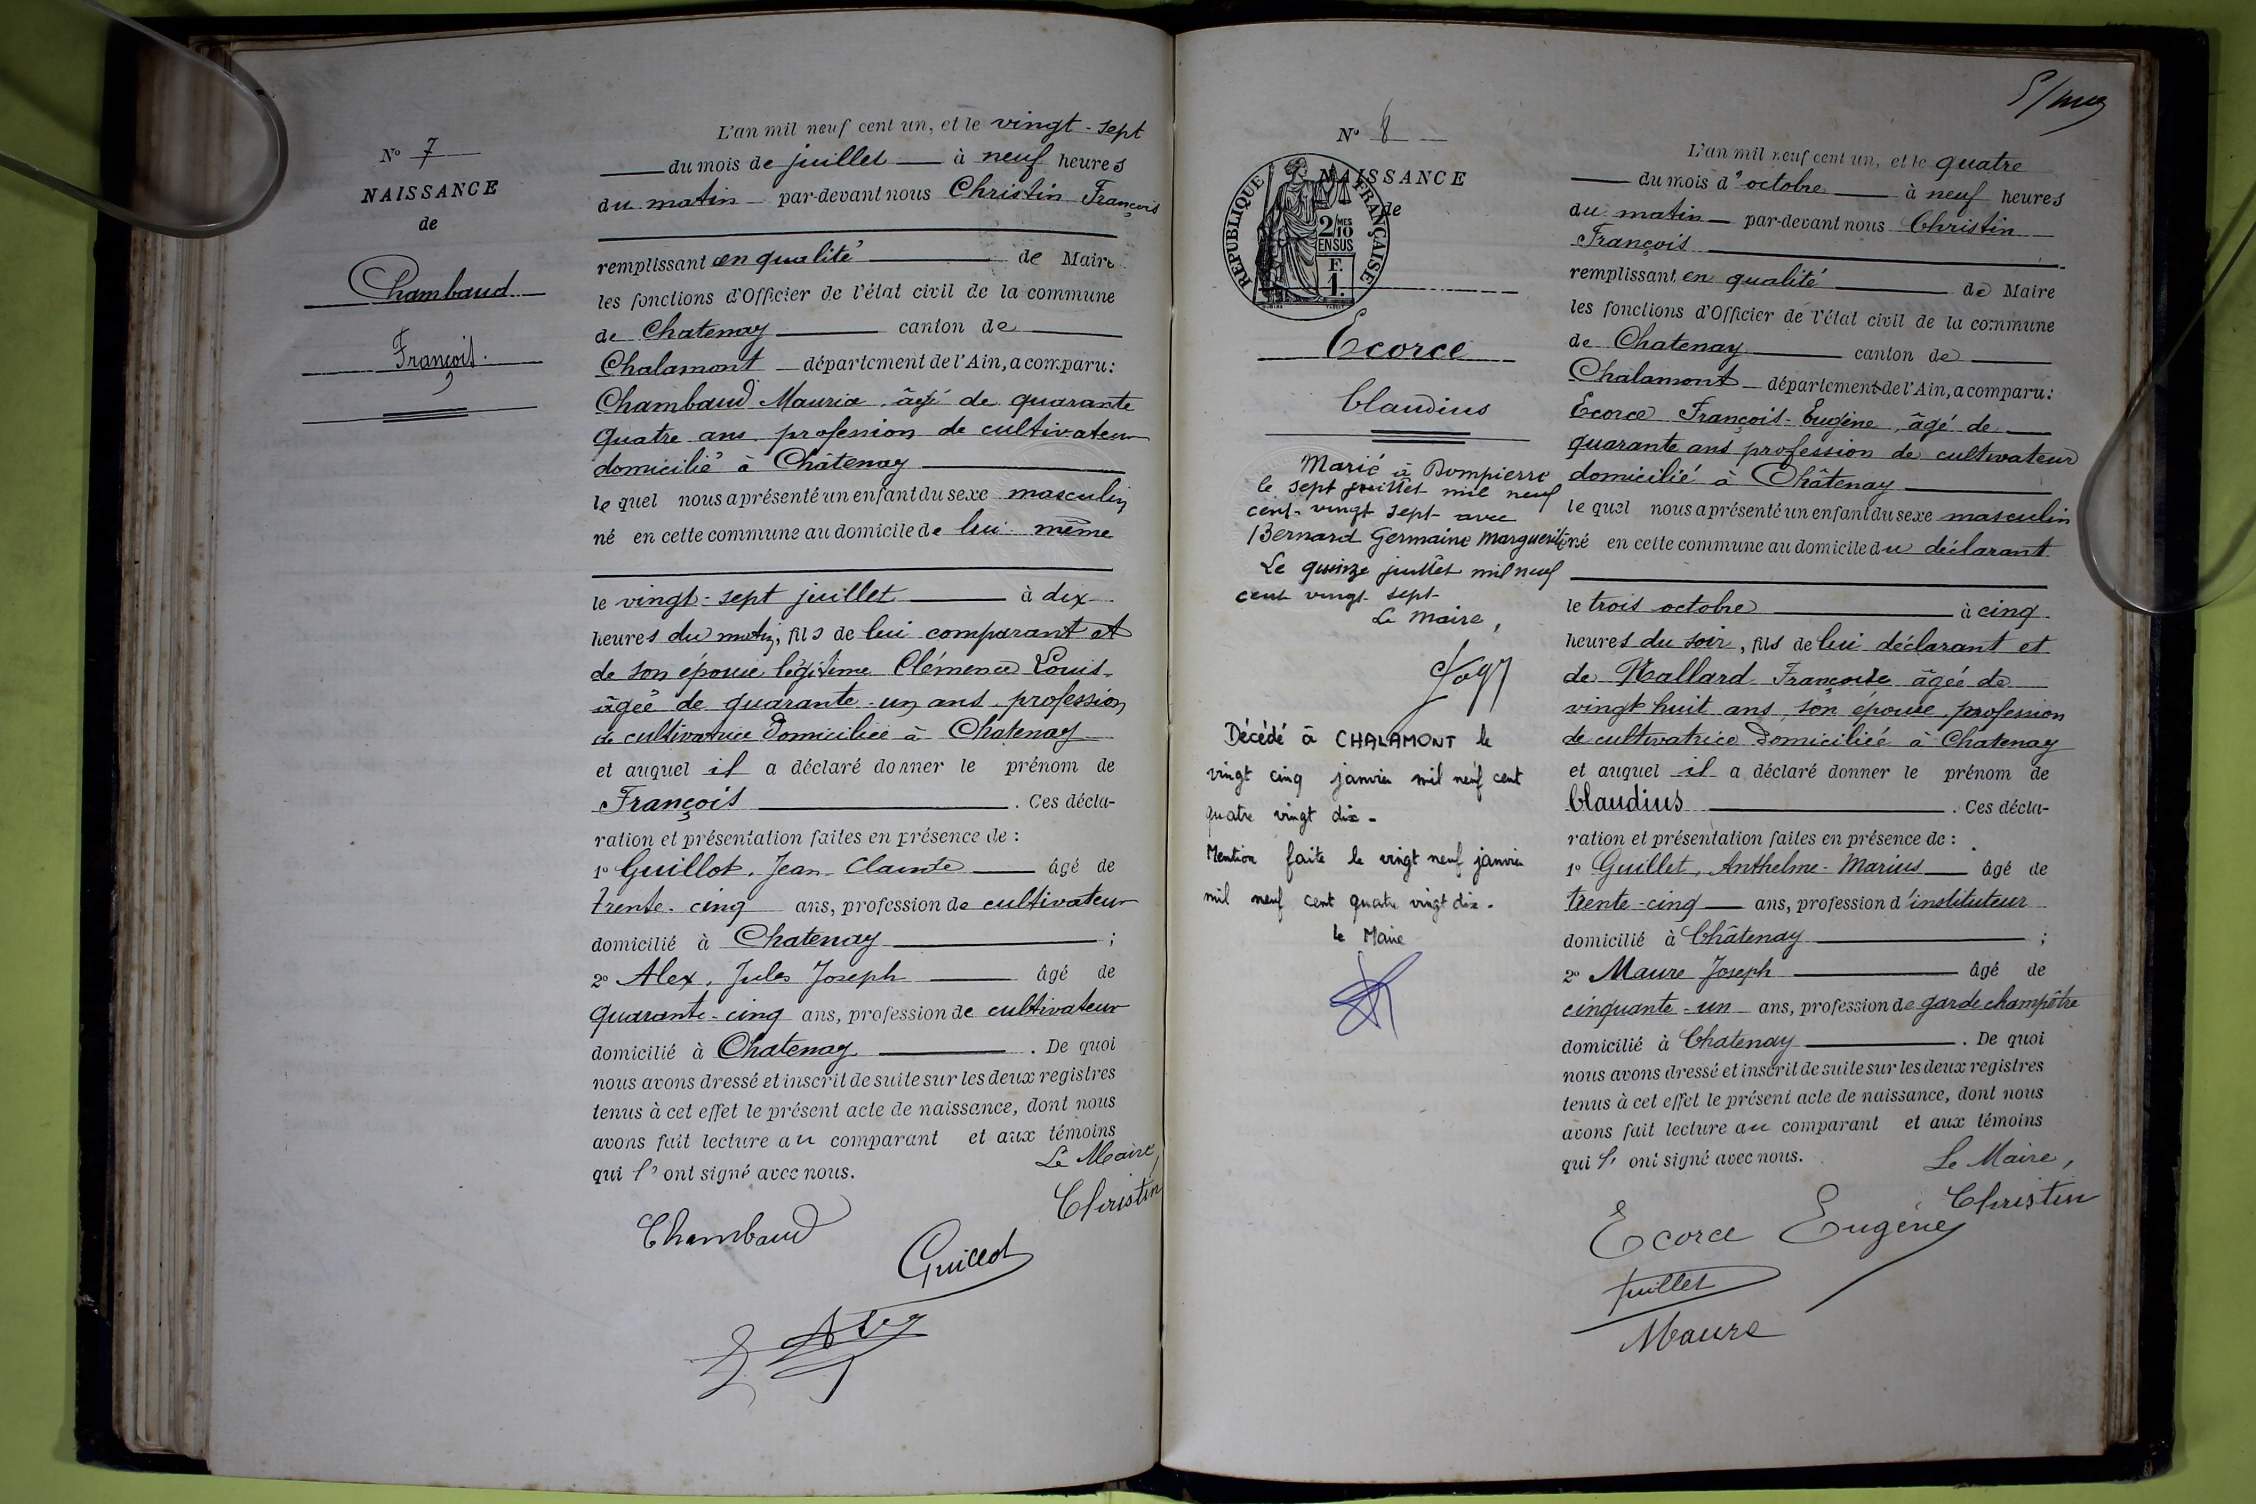 N° 7
NAISSANCE
de
Chambaud
François.
L'an mil neuf cent un, et le vingt-sept
du mois de juillet à neuf heures
du matin par-devant nous Christin François
remplissant en qualité de Maire
les fonctions d'Officier de l'état civil de la commune
de Chatenay canton de
Chalamont département de l'Ain, a comparu:
Chambaud Maurice, âgé de quarante
quatre ans, profession de cultivateur
domicilié à Châtenay
lequel nous a présenté un enfant du sexe masculin
né en cette commune au domicile de lui-même
le vingt-sept juillet à dix
heures du matin, fils de lui comparant et
de son épouse légitime Clémence Louis,
âgée de quarante-un ans, profession
de cultivatrice domiciliée à Chatenay
et auquel il a déclaré donner le prénom de
François. Ces décla-
ration et présentation faites en présence de :
1° Guillot, Jean-Claude âgé de
trente-cinq ans, profession de cultivateur
domicilié à Chatenay ;
2° Alex, Jules Joseph âgé de
quarante-cinq ans, profession de cultivateur
domicilié à Chatenay. De quoi
nous avons dressé et inscrit de suite sur les deux registres
tenus à cet effet le présent acte de naissance, dont nous
avons fait lecture au comparant et aux témoins
qui l'ont signé avec nous.
Le Maire,
Christin
Chambaud
Guillot
N° 8
NAISSANCE
de
REPUBLIQUE FRANÇAISE
2/10 MES
EN SUS
F.
1.
Ecorce
Claudius
Marié à Dompierre
le sept juillet mil neuf
cent-vingt sept avec
Bernard Germaine Marguerite
Le quinze juillet mil neuf
cent vingt sept
Le Maire,
Décédé à CHALAMONT le
vingt cinq janvier mil neuf cent
quatre vingt dix -
Mention faite le vingt neuf janvier
mil neuf cent quatre vingt dix.
le Maire
L'an mil neuf cent un, et le quatre
du mois d'octobre à neuf heures
du matin par-devant nous Christin
François
remplissant en qualité de Maire
les fonctions d'Officier de l'état civil de la commune
de Chatenay canton de
Chalamont département de l'Ain, a comparu:
Ecorce François-Eugène, âgé de
quarante ans profession de cultivateur
domicilié à Châtenay
lequel nous a présenté un enfant du sexe masculin
né en cette commune au domicile du déclarant
le trois octobre à cinq
heures du soir, fils de lui déclarant et
de Mallard Françoise âgée de
vingt huit ans, son épouse, profession
de cultivatrice domiciliée à Chatenay
et auquel il a déclaré donner le prénom de
Claudius. Ces décla-
ration et présentation faites en présence de :
1° Guillet, Anthelme-Marius âgé de
trente-cinq ans, profession d'instituteur
domicilié à Châtenay ;
2° Maure Joseph âgé de
cinquante-un ans, profession de garde champêtre
domicilié à Chatenay. De quoi
nous avons dressé et inscrit de suite sur les deux registres
tenus à cet effet le présent acte de naissance, dont nous
avons fait lecture au comparant et aux témoins
qui l'ont signé avec nous.
Le Maire,
Christin
Ecorce Eugène
Guillet
Maure